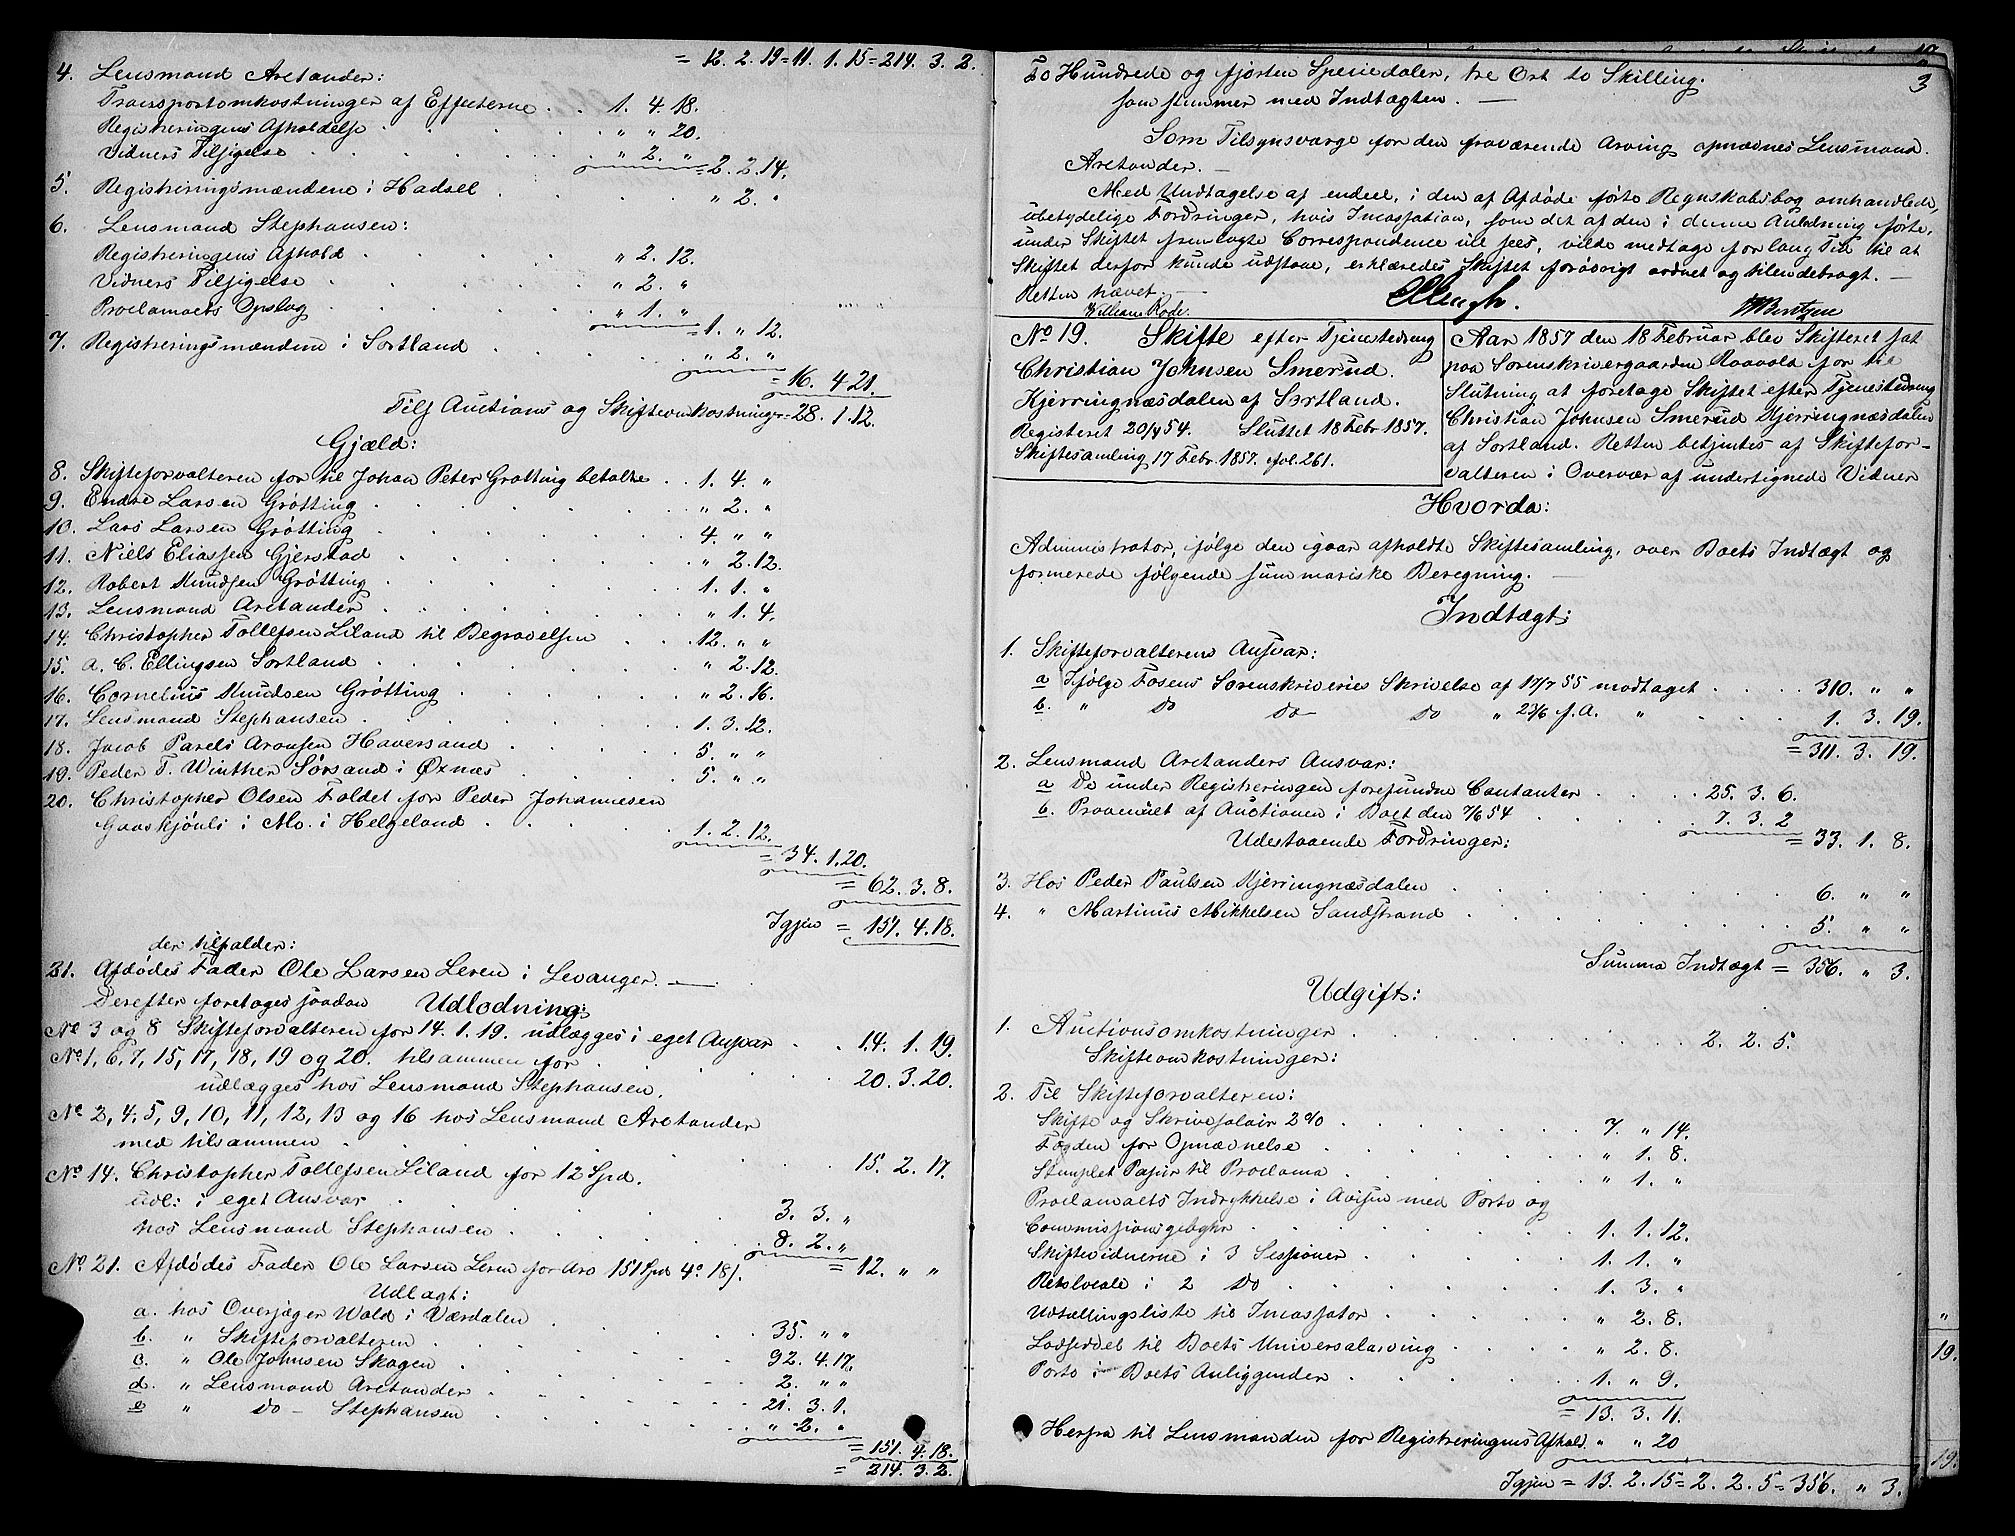 = 12. 2. 19 = 11. 1. 15 = 214. 3. 2.
4. Lensmand Arctander:
Transportomkostninger af Effecterne . . 1. 4. 18.
Registreringens Afholdelse . . . . " " 20.
Vidners Tilsigelse . . . . " 2. "
= 2. 2. 14.
5. Registreringsmændene i Hadsel . . . . " 2. "
6. Lensmand Stephansen:
Registreringens Afhold . . . . " 2. 12.
Vidners Tilsigelse . . . . " 2. "
Proclamaets Opslag . . . . " 1. "
= 1. " 12.
7. Registreringsmændene i Sortland . . . . " 2. "
= 16. 4 21.
Tils Auctions og Skifteomkostninger = 28. 1. 12.
Gjæld:
8. Skifteforvalteren for til Johan Peter Grøtting betalte . . 1. 4. "
9. Endre Larsen Grøtting . . . . " 2. "
10. Lars Larsen Grøtting . . . . 4. " "
11. Niels Eliassen Gjerstad . . . . " 2. 12.
12. Robert Knudsen Grøtting . . . . 1. 1. "
13. Lensmand Arctander . . . . " 1. 4.
14. Christopher Tollefsen Liland til Begravelsen . . . 12. " "
15. A. C. Ellingsen Sortland . . . . " 2. 12.
16. Cornelius Knudsen Grøtting . . . . " 2. 16.
17. Lensmand Stephansen . . . . 1. 3. 12.
18. Jacob Parels Aronsen Haversand . . . . 5. " "
19. Peder T. Winther Sørsand i Øxnæs . . . . 5. " "
20. Christopher Olsen Foldet for Peder Johannesen
Gaaskjønli i Mo i Helgeland . . . . 1. 2. 12.
= 34. 1. 20.
= 62. 3. 8.
Igjen = 151. 4. 18.
der tilfalder:
21. Afdødes Fader Ole Larsen Leren i Levanger. —
Derefter foretoges saadan Udlodning:
No 3 og 8 Skifteforvalteren for 14. 1. 19. udlægges i eget Ansvar . . 14. 1. 19.
No 1, 6, 7, 15, 17, 18, 19 og 20. tilsammen for
udlægges hos Lensmand Stephansen. . . . 20. 3. 20.
No 2, 4, 5, 9, 10, 11, 12, 13 og 16 hos Lensmand Arctander
med tilsammen . . . . 15. 2. 17.
No 14. Christopher Tollefsen Liland for 12 Spd.
udl: i eget Ansvar . . . . 3. 3. "
hos Lensmand Stephansen . . . . 8. 2. "
= 12. " "
No 21. Afdødes Fader Ole Larsen Leren for Arv 151 Spd 4o 18s.
Udlagt:
a. hos Overjæger Wald i Værdalen . . . . 35. " "
b. " Skifteforvalteren . . . . 92. 4. 17.
c. " Ole Johnsen Skogen . . . . 2. " "
d. " Lensmand Arctander . . . . 21. 3. 1.
e " do — Stephansen . . . . " 2. "
= 151. 4. 18.
= 214. 3. 2.
3
To Hundrede og fjorten Speciedaler, tre Ort to Skilling.
som stemmer med Indtægten. —
Som Tilsynsværge for den fraværende Arving opnævnes Lensmand
Arctander. —
Med Undtagelse af endeel, i den af Afdøde førte Regnskabsbog omhandlede,
ubetydelige Fordringer, hvis Incassation, som det af den i denne Anledning førte,
under Skiftet fremlagte Correspondence vil sees, vilde medtage for lang Tid til at
Skiftet derfor kunde udstaae, erklæredes Skiftet forøvrigt ordnet og tilendebragt. —
Retten hævet. —
William Rode.
No 19. Skifte efter Tjenestedreng
Christian Johnsen Smerud.
Kjerringnæsdalen af Sortland.
Registeret 20/4 54. Sluttet 18 Febr 1857.
Skiftesamling 17 Febr. 1857. fol. 261.
Aar 1857 den 18 Februar blev Skifteret sat
paa Sorenskrivergaarden Raavold for til
Slutning at foretage Skiftet efter Tjenestedreng
Christian Johnsen Smerud Kjerringnæsdalen
af Sortland. Retten betjentes af Skiftefor-
valteren i Overvær af undertignede Vidner
Hvorda:
Administrator, ifølge den igaar afholdte Skiftesamling, over Boets Indtægt og
formerede følgende summariske Beregning. —
Indtægt:
1. Skifteforvalterens Ansvar:
a Ifølge Fosens Sorenskriveries Skrivelse af 17/7 55 modtaget . . . . 310. " "
b. " do do do " 23/6 f.A. " . . . 1. 3. 19.
= 311. 3. 19.
2. Lensmand Arctanders Ansvar:
a De under Registreringen forefundne Contanter . . . . 25. 3. 6.
b. Provenuet af Auctionen i Boet den 7/6 54 . . . . 7. 3. 2
= 33. 1. 8.
Udestaaende Fordringer:
3. Hos Peder Paulsen Kjerringnæsdalen . . . . 6. " "
4. " Martinus Mikkelsen Sandstrand . . . . 5. " "
Summa Indtægt = 356. " 3.
Udgift:
1. Auctionsomkostninger . . . . 2. 2. 5.
Skifteomkostninger:
2. Til Skifteforvalteren:
Skifte og Skriversalair 2% . . . . 7. " 14.
Fogden for Opnævnelse . . . . " 1. 8.
Stemplet Papir til Proclama . . . . " 1. "
Proclamaets Indrykkelse i Avisen med Porto og
Commissionsgebyhr . . . . 1. 1. 12.
Skiftevidnerne i 3 Sessioner . . . . 1. 1. "
Retslocale i 2 do . . . . 1. 3. "
Udtællingsliste til Incassator . . . . " 2. 8.
Lodseddel til Boets Universalarving . . . . " 2. 8.
Porto i Boets Anliggender . . . . 1. " 9.
= 13. 3. 11.
Herfra til Lensmanden for Registreringens Afhold. " " 20
Igjen = 13. 2. 15 = 2. 2. 5 = 356. " 3.